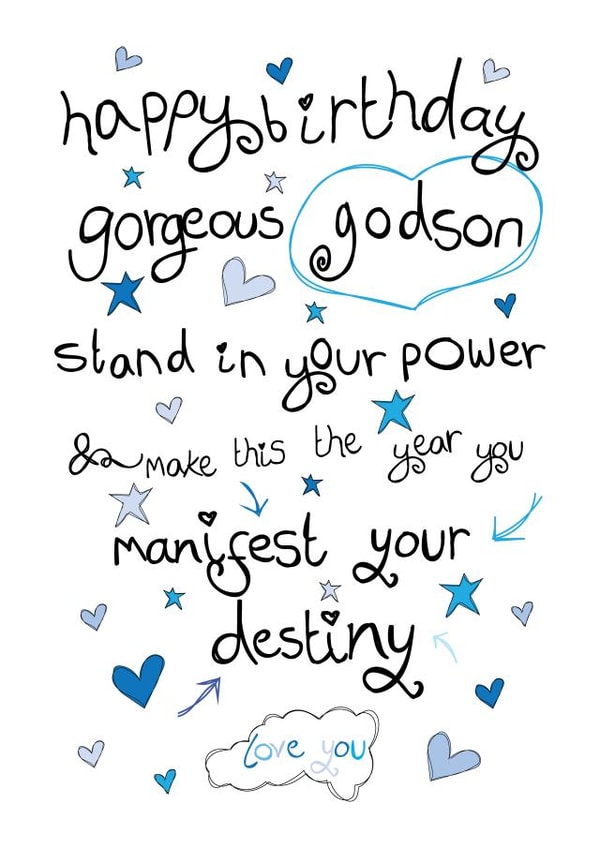 happy birthday
gorgeous godson
stand in your power
& make this the year you
manifest your
destiny
love you